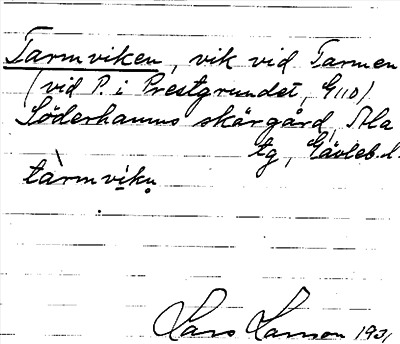 Tarmviken, vik vid Tarmen
(vid P. i Prestgrundet, G110).
Söderhamns skärgård, Ala
tg, Gävleb. l.
tàrmvikn
Lars Larsson 1931